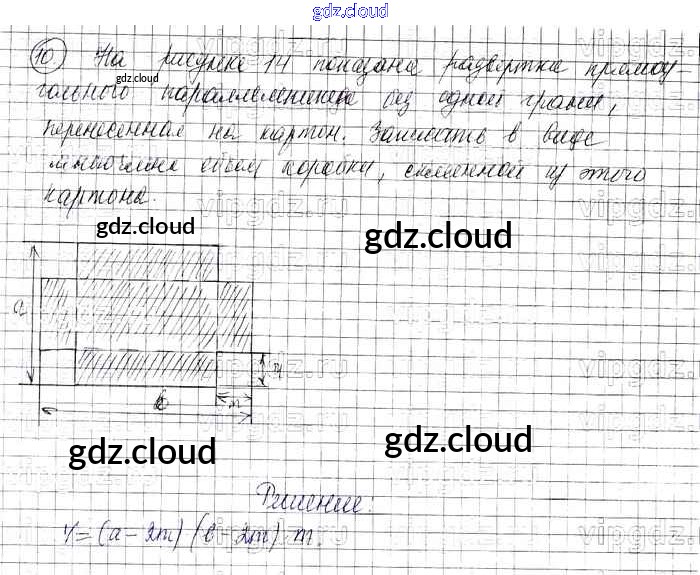 gdz.cloud
10. На рисунке 14 показана развёртка прямоу-
gdz.cloud
гольного параллелепипеда без одной грани,
перенесенная на картон. Записать в виде
объем коробки, склеенной из этого
картона.
gdz.cloud
gdz.cloud
a
m
b
m
gdz.cloud
gdz.cloud
Решение:
V = (a - 2m) (b - 2m) m.